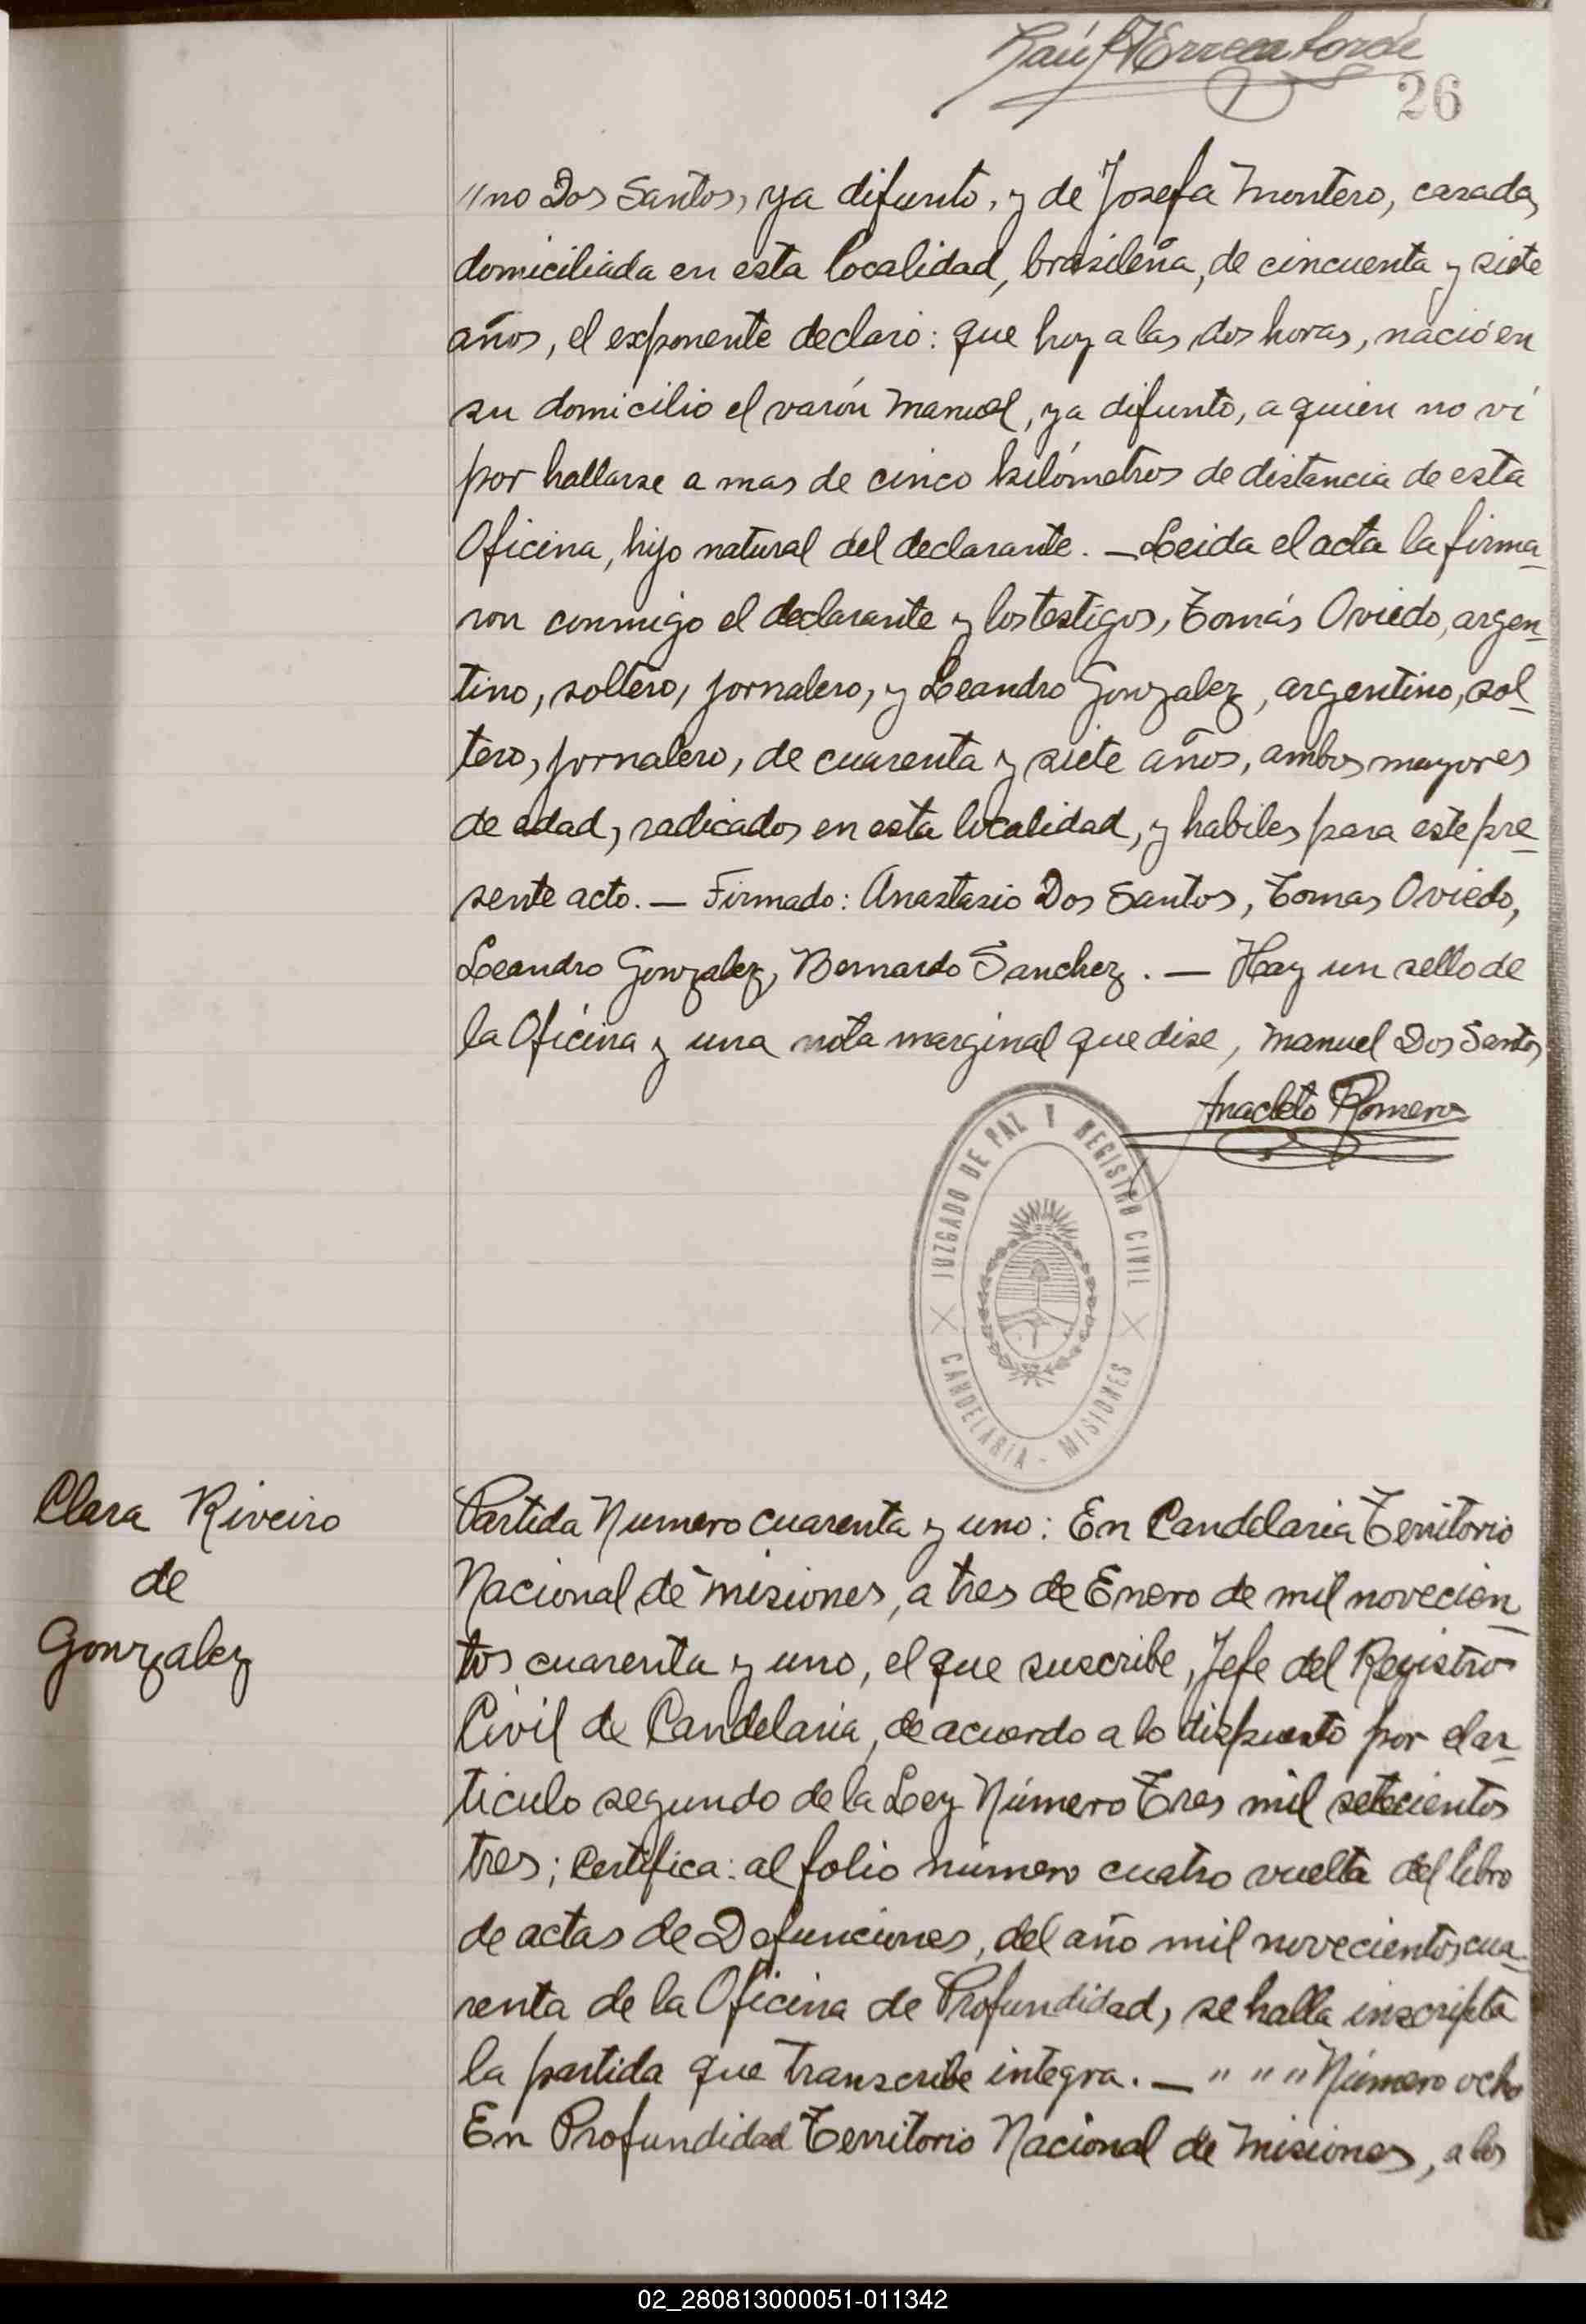 Raúl Errecaborde
26
"no Dos Santos, ya difunto, y de Josefa Montero, casada,
domiciliada en esta localidad, brasileña, de cincuenta y siete
años, el exponente declaró: que hoy a las dos horas, nació en
su domicilio el varón Manuel, ya difunto, a quien no ví
por hallarse a mas de cinco kilómetros de distancia de esta
Oficina, hijo natural del declarante. — Leida el acta la firma-
ron conmigo el declarante y los testigos, Tomás Oviedo, argen-
tino, soltero, jornalero, y Leandro Gonzalez, argentino, sol-
tero, jornalero, de cuarenta y siete años, ambos mayores
de edad, radicados en esta localidad, y habiles para este pre-
sente acto. — Firmado: Anastasio Dos Santos, Tomas Oviedo,
Leandro Gonzalez, Bernardo Sanchez. — Hay un sello de
la Oficina y una nota marginal que dise, Manuel Dos Santos
Anacleto Romero
JUZGADO DE PAZ Y REGISTRO CIVIL
CANDELARIA - MISIONES
Clara Riveiro
de
Gonzalez
Partida Numero cuarenta y uno: En Candelaria Territorio
Nacional de Misiones, a tres de Enero de mil novecien-
tos cuarenta y uno, el que suscribe, Jefe del Registro
Civil de Candelaria, de acuerdo a lo dispuesto por el ar-
ticulo segundo de la Ley Número Tres mil setecientos
tres; Certifica: al folio número cuatro vuelta del libro
de actas de Defunciones, del año mil novecientos cua-
renta de la Oficina de Profundidad, se halla inscripta
la partida que transcribe integra. — " " " Número ocho
En Profundidad Territorio Nacional de Misiones, a los
02_280813000051-011342